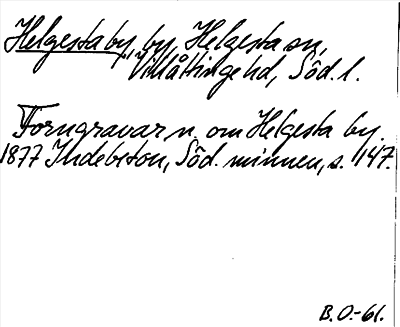 Helgesta by, by, Helgesta sn,
Villåttinge hd, Söd. l.
Forngravar n. om Helgesta by.
1877 Indebetou, Söd. minnen, s. 147.
B.O.-61.